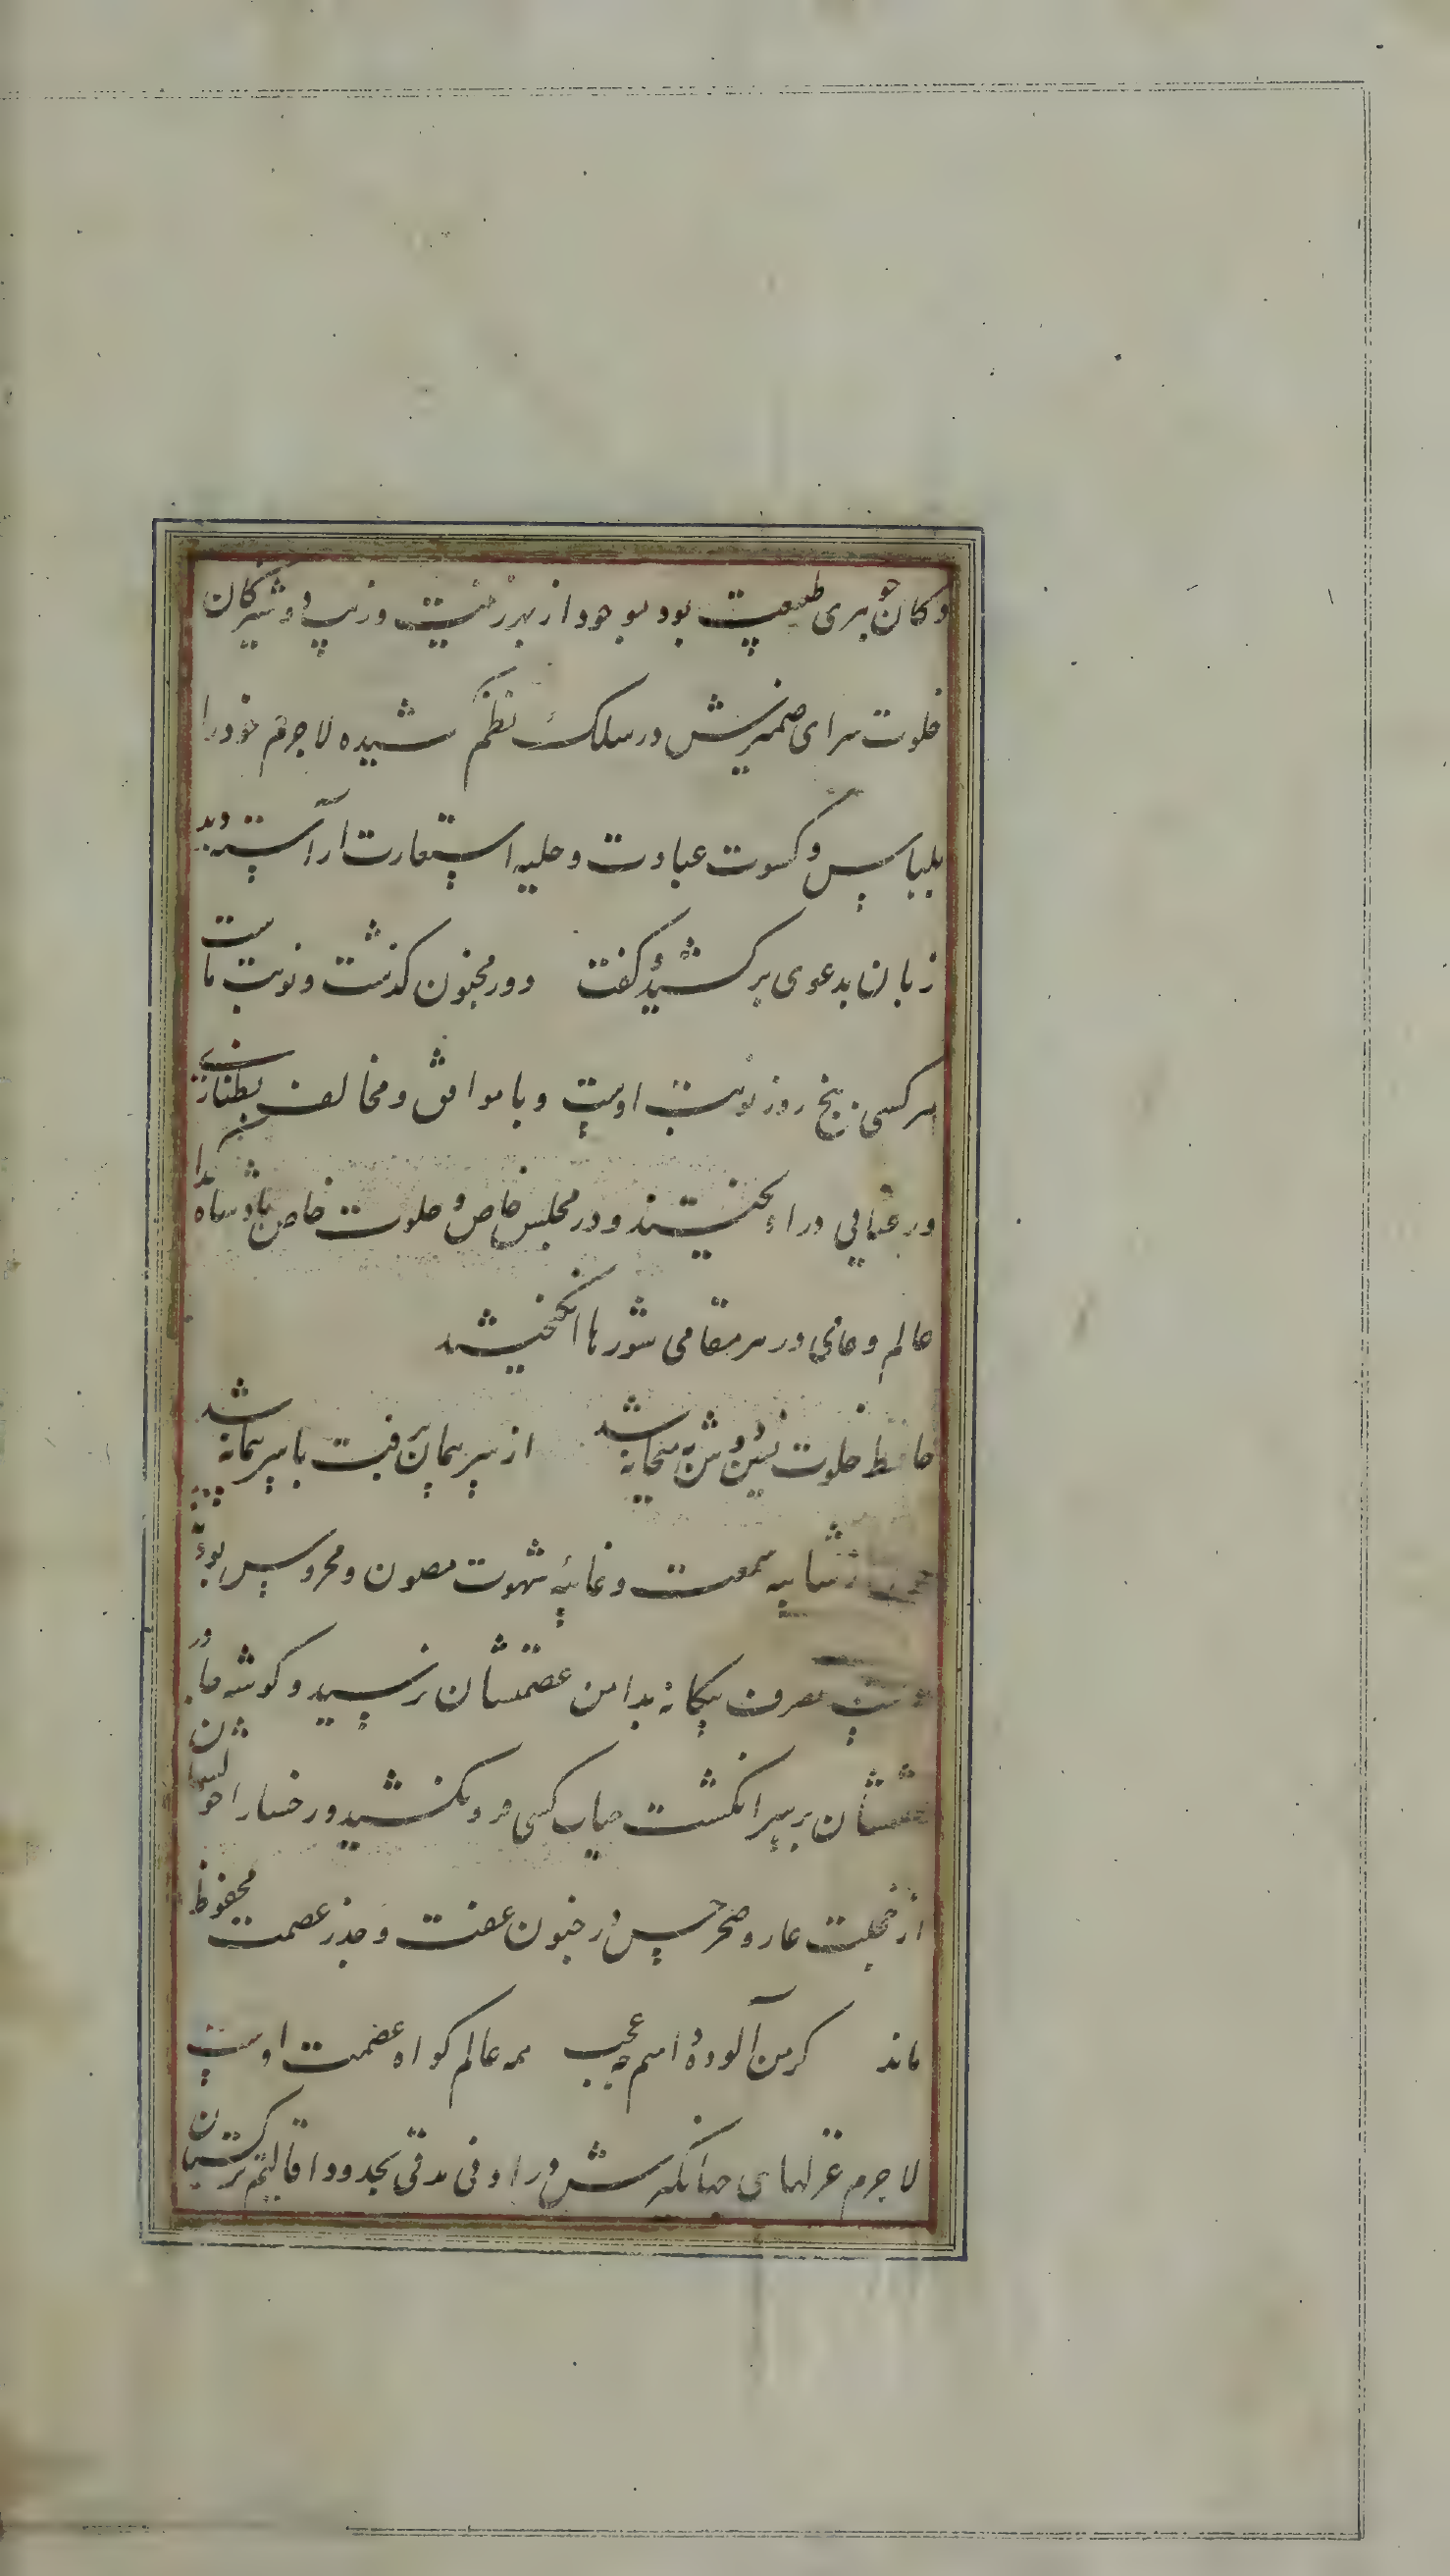 دکان جوهری طبیعت بود موجود از بهر زینت و زیب دوشیزکان
خلوت سرای ضمیرش در سلک نظم کشیده لاجرم خود را
بلباس و کسوت عبارت و حلیه استعارت آراسته دید
زبان بدعوی بر کشید و گفت دور مجنون کذشت و نوبت ماست
هر کسی پنج روز نوبت اوست و با موافق و مخالف بطنازی
و رعنایی در آویختند و در مجلس خاص و خلوت خاص پادشاه
عالم و عامی در هر مقامی شورها انکیختند
حافظ خلوت نشین دوش به میخانه شد از سر پیمان برفت با سر پیمانه شد
از شایبه سمعت و غائبه شهوت مصون و محروس بوده
تصرف بیکانه بدامن عصمتشان نرسید و کوشه چادر
عفتشان بسر انکشت خیانت کسی فرو نکشید و رخسار احوالشان
از خجلت عار و در عفت و عصمت محفوظ
ماند کر من آلوده ام چه عجب همه عالم کواه عصمت اوست
لاجرم غزلهای جهانکیرش در ادنی مدتی بحدود اقالیم ترکستان